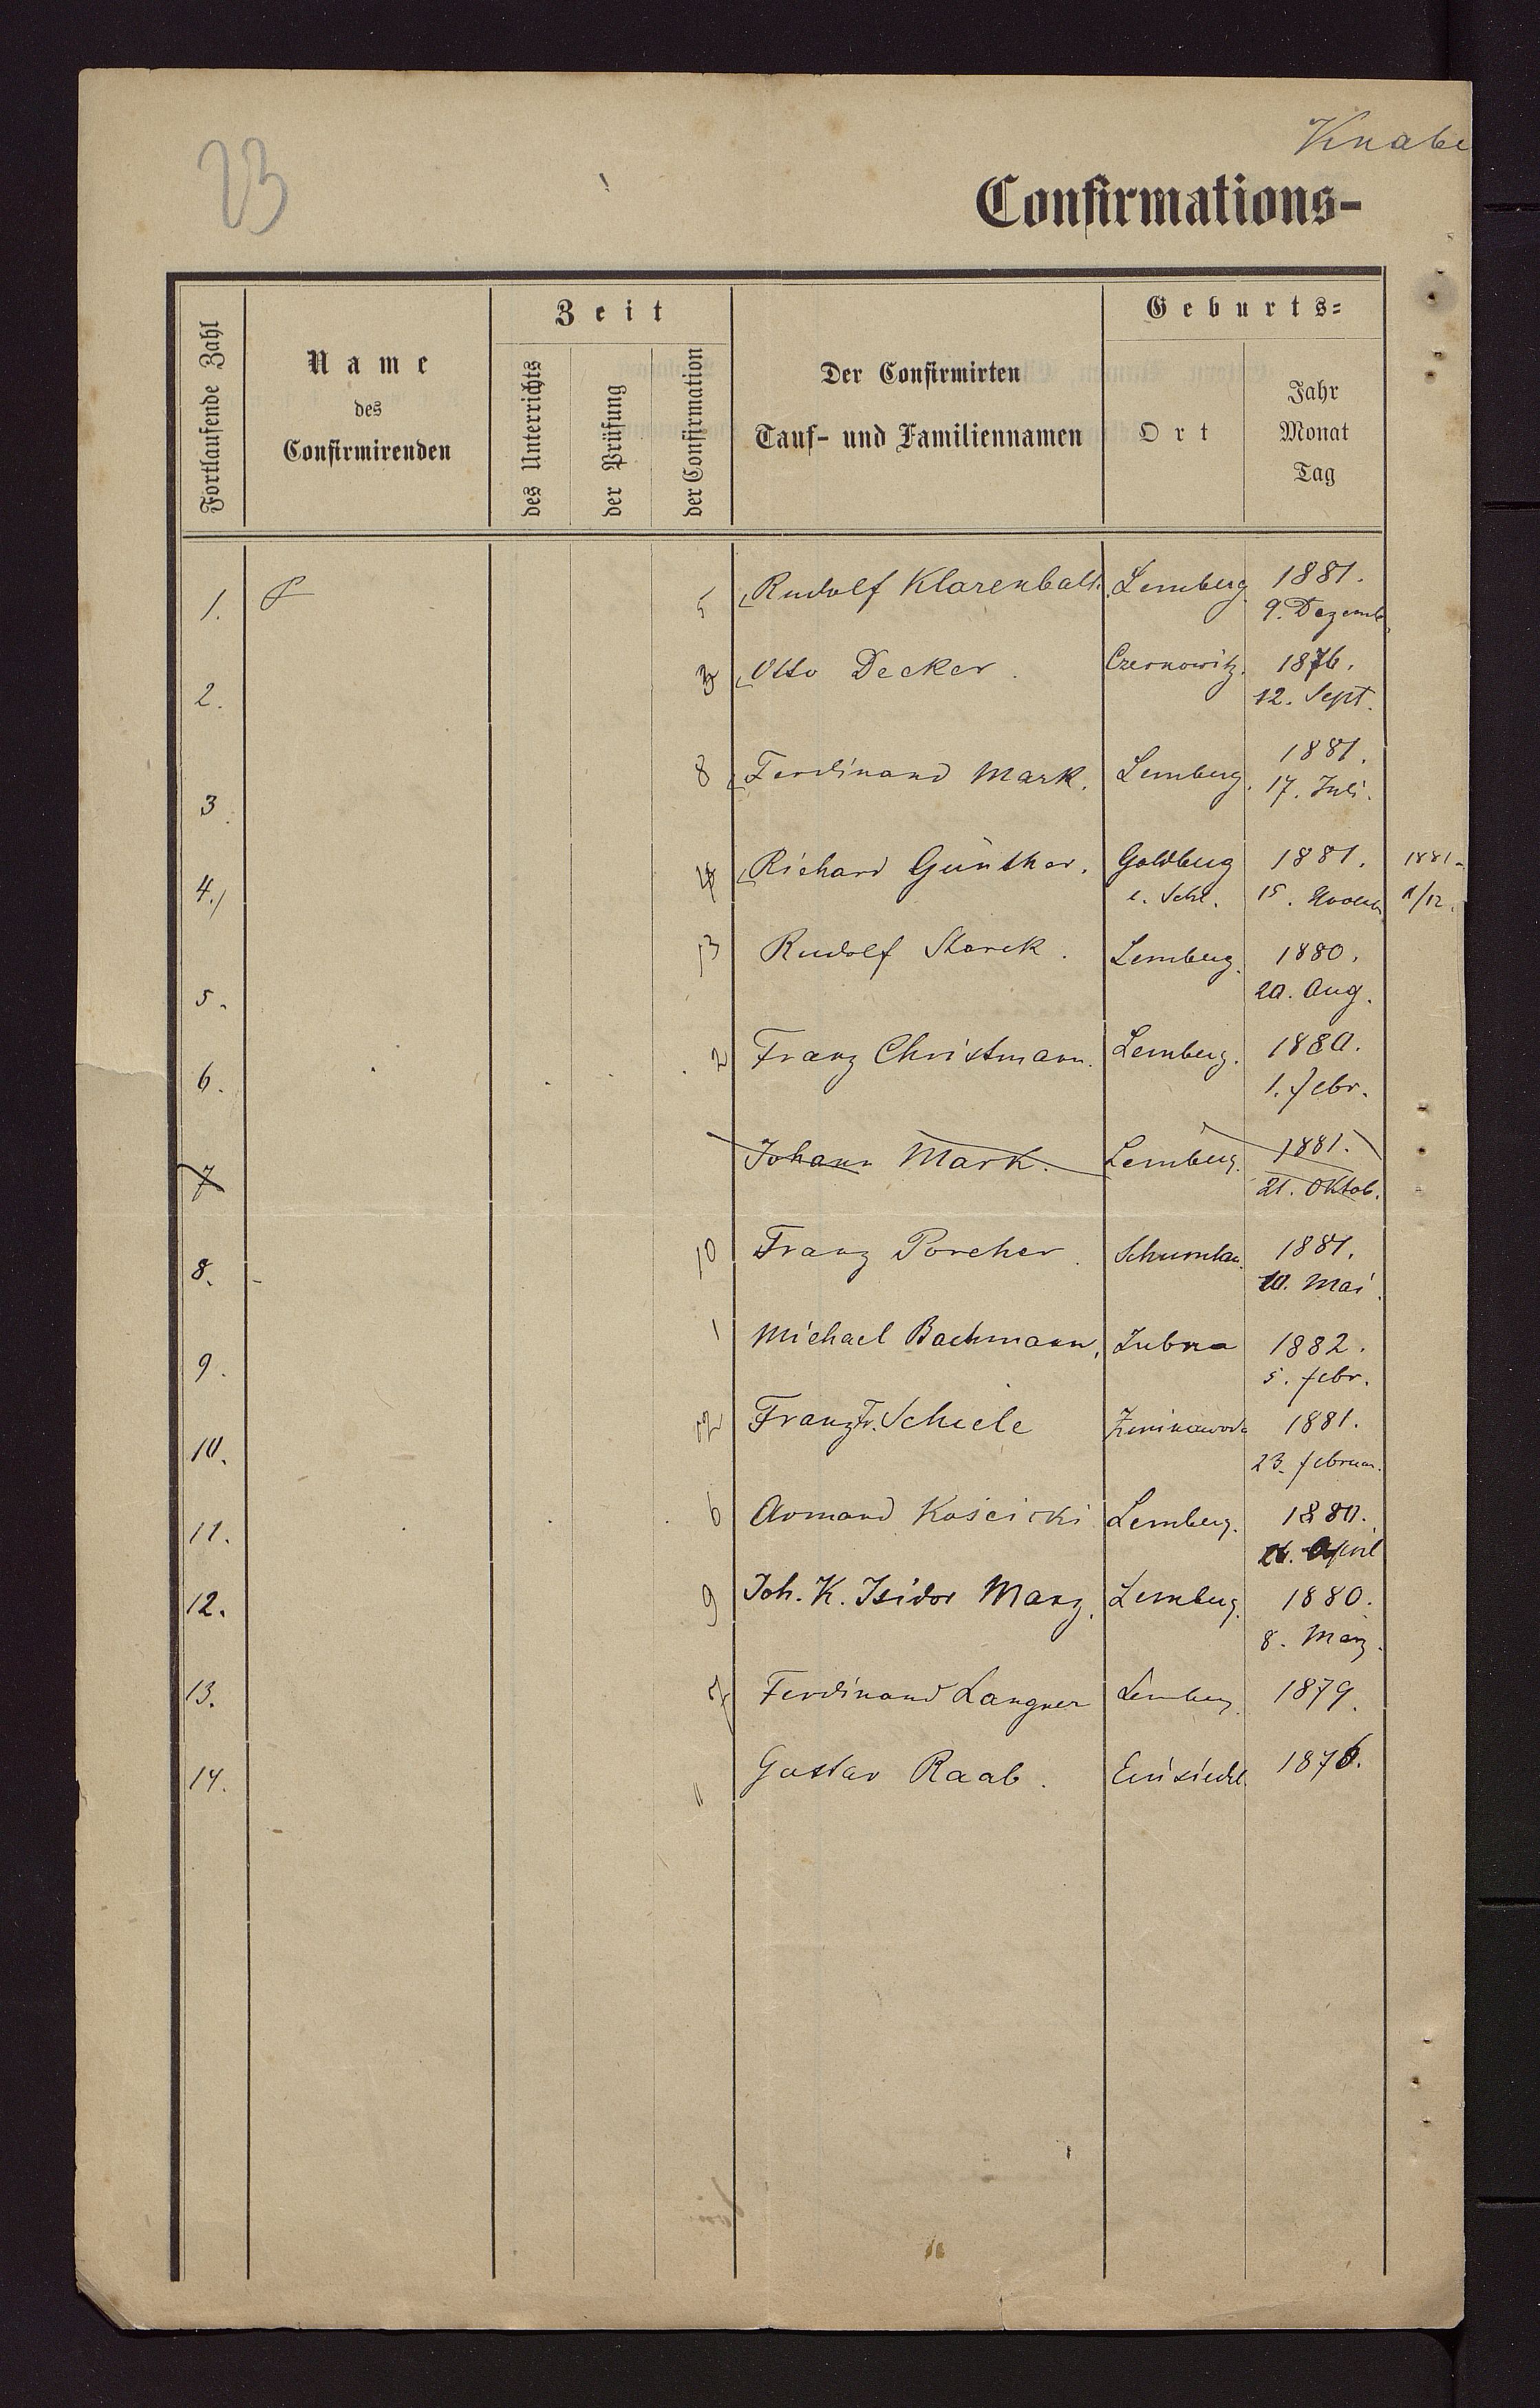 23
Knabe
Confirmations-
Fortlaufende Zahl
Name
des
Confirmirenden
Zeit
des Unterrichts
der Prüfung
der Confirmation
Der Confirmirten
Tauf- und Familiennamen
Geburts-
Ort
Jahr
Monat
Tag
1. 5 Rudolf Klarenbach. Lemberg 1881.
9. Dezemb.
2. 3 Otto Decker. Czernowitz. 1876.
12. Sept.
3. 8 Ferdinand Mark. Lemberg. 1881.
17. Juli.
4. 4 Richard Günther. Goldberg 1881. 1881.
i. Schl. 15. 1/12.
5. 13 Rudolf Starck. Lemberg. 1880.
20. Aug.
6. 2 Franz Christmann. Lemberg. 1880.
1. Febr.
7 Johann Mark. Lemberg. 1881.
21. Oktob.
8. 10 Franz Porcher. Schumlau. 1881.
10. Mai.
9. 1 Michael Bachmann, Zubra 1882.
5. Febr.
10. 12 Franz Fr. Schiele Zimnawoda 1881.
23. Februar.
11. 6 Armand Kościcki Lemberg. 1880.
April
12. 9 Joh. K. Isidor Manz. Lemberg. 1880.
8. März.
13. 7 Ferdinand Langner Lemberg. 1879.
14. 11 Gustav Raab. Einsiedel. 1876.